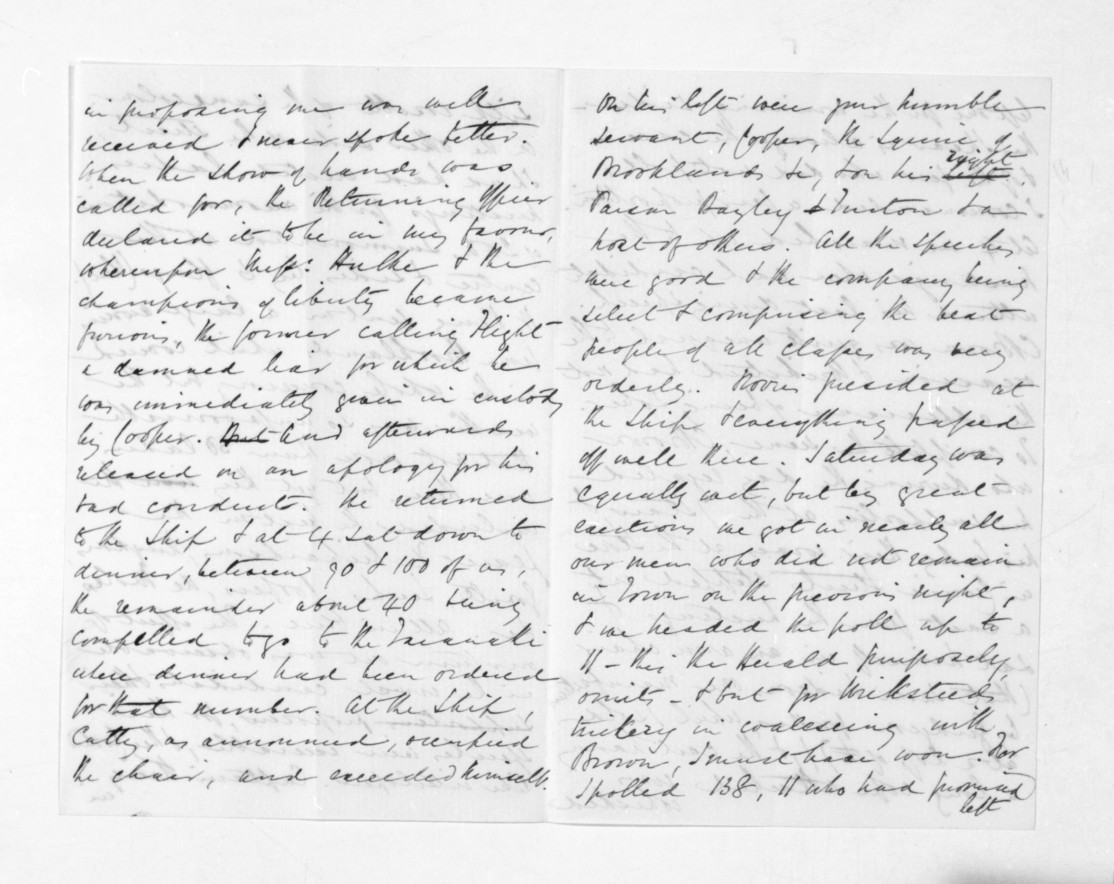 in proposing me was well
received & never spoke better.
When the show of hands was
called for, the Returning Officer
declared it to be in my favour,
whereupon Messrs. Hulke & the
champions of liberty became
furious, the former calling Flight
a damned liar for which he
was immediately given in custody
by Cooper. But And afterwards
released on an apology for his
bad conduct. We returned
to the Ship & at 4 sat down to
dinner, between 90 & 100 of us,
the remainder about 40 being
compelled to go to the Taranaki
where dinner had been ordered
for that number. At the Ship,
Cutty, as announced, occupied
the chair, and exceeded himself.
On his left were your humble
servant, Cooper, the Squire of
Brooklands &c, & on his left right
Parson Bayley & Turton & a
host of others. All the speeches
were good & the company being
select & comprising the best
people of all classes was very
orderly. Norris presided at
the Ship & everything passed
off well there. Saturday was
equally wet, but by great
exertions we got in nearly all
our men who did not remain
in Town on the previous night,
& we headed the poll up to
11 - this the Herald purposely
omits - & but for Wicksteeds
trickery in coalescing with
Brown, I must have won. For
I polled 138, 11 who had promised
left